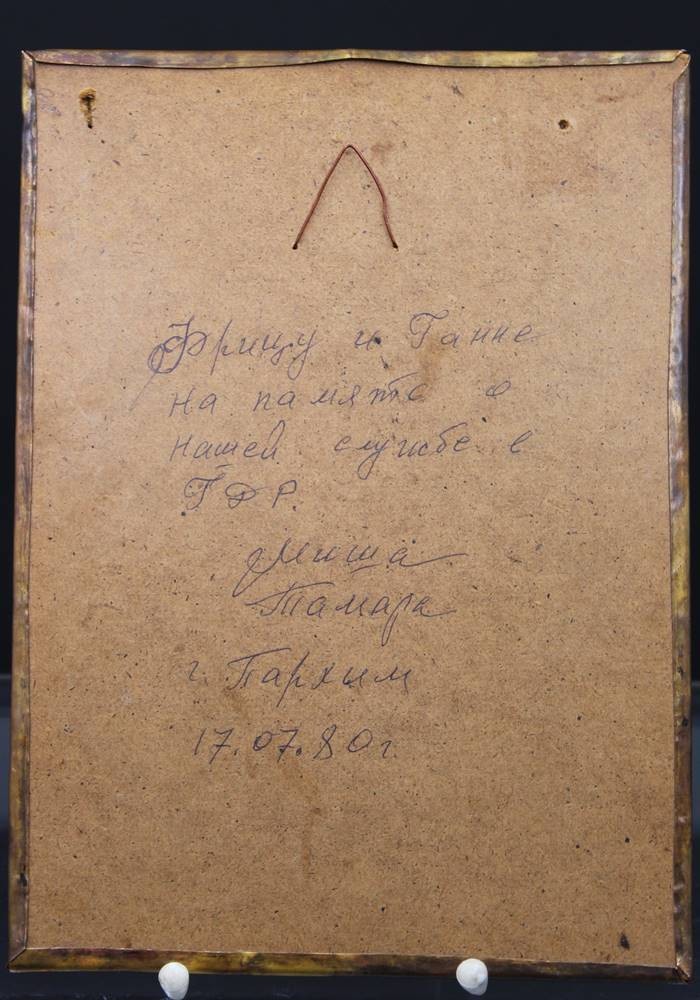 Фрицу и Ганне
на память о
нашей службе в
ГДР.
Миша
Тамара
г. Пархим
17.07.80г.